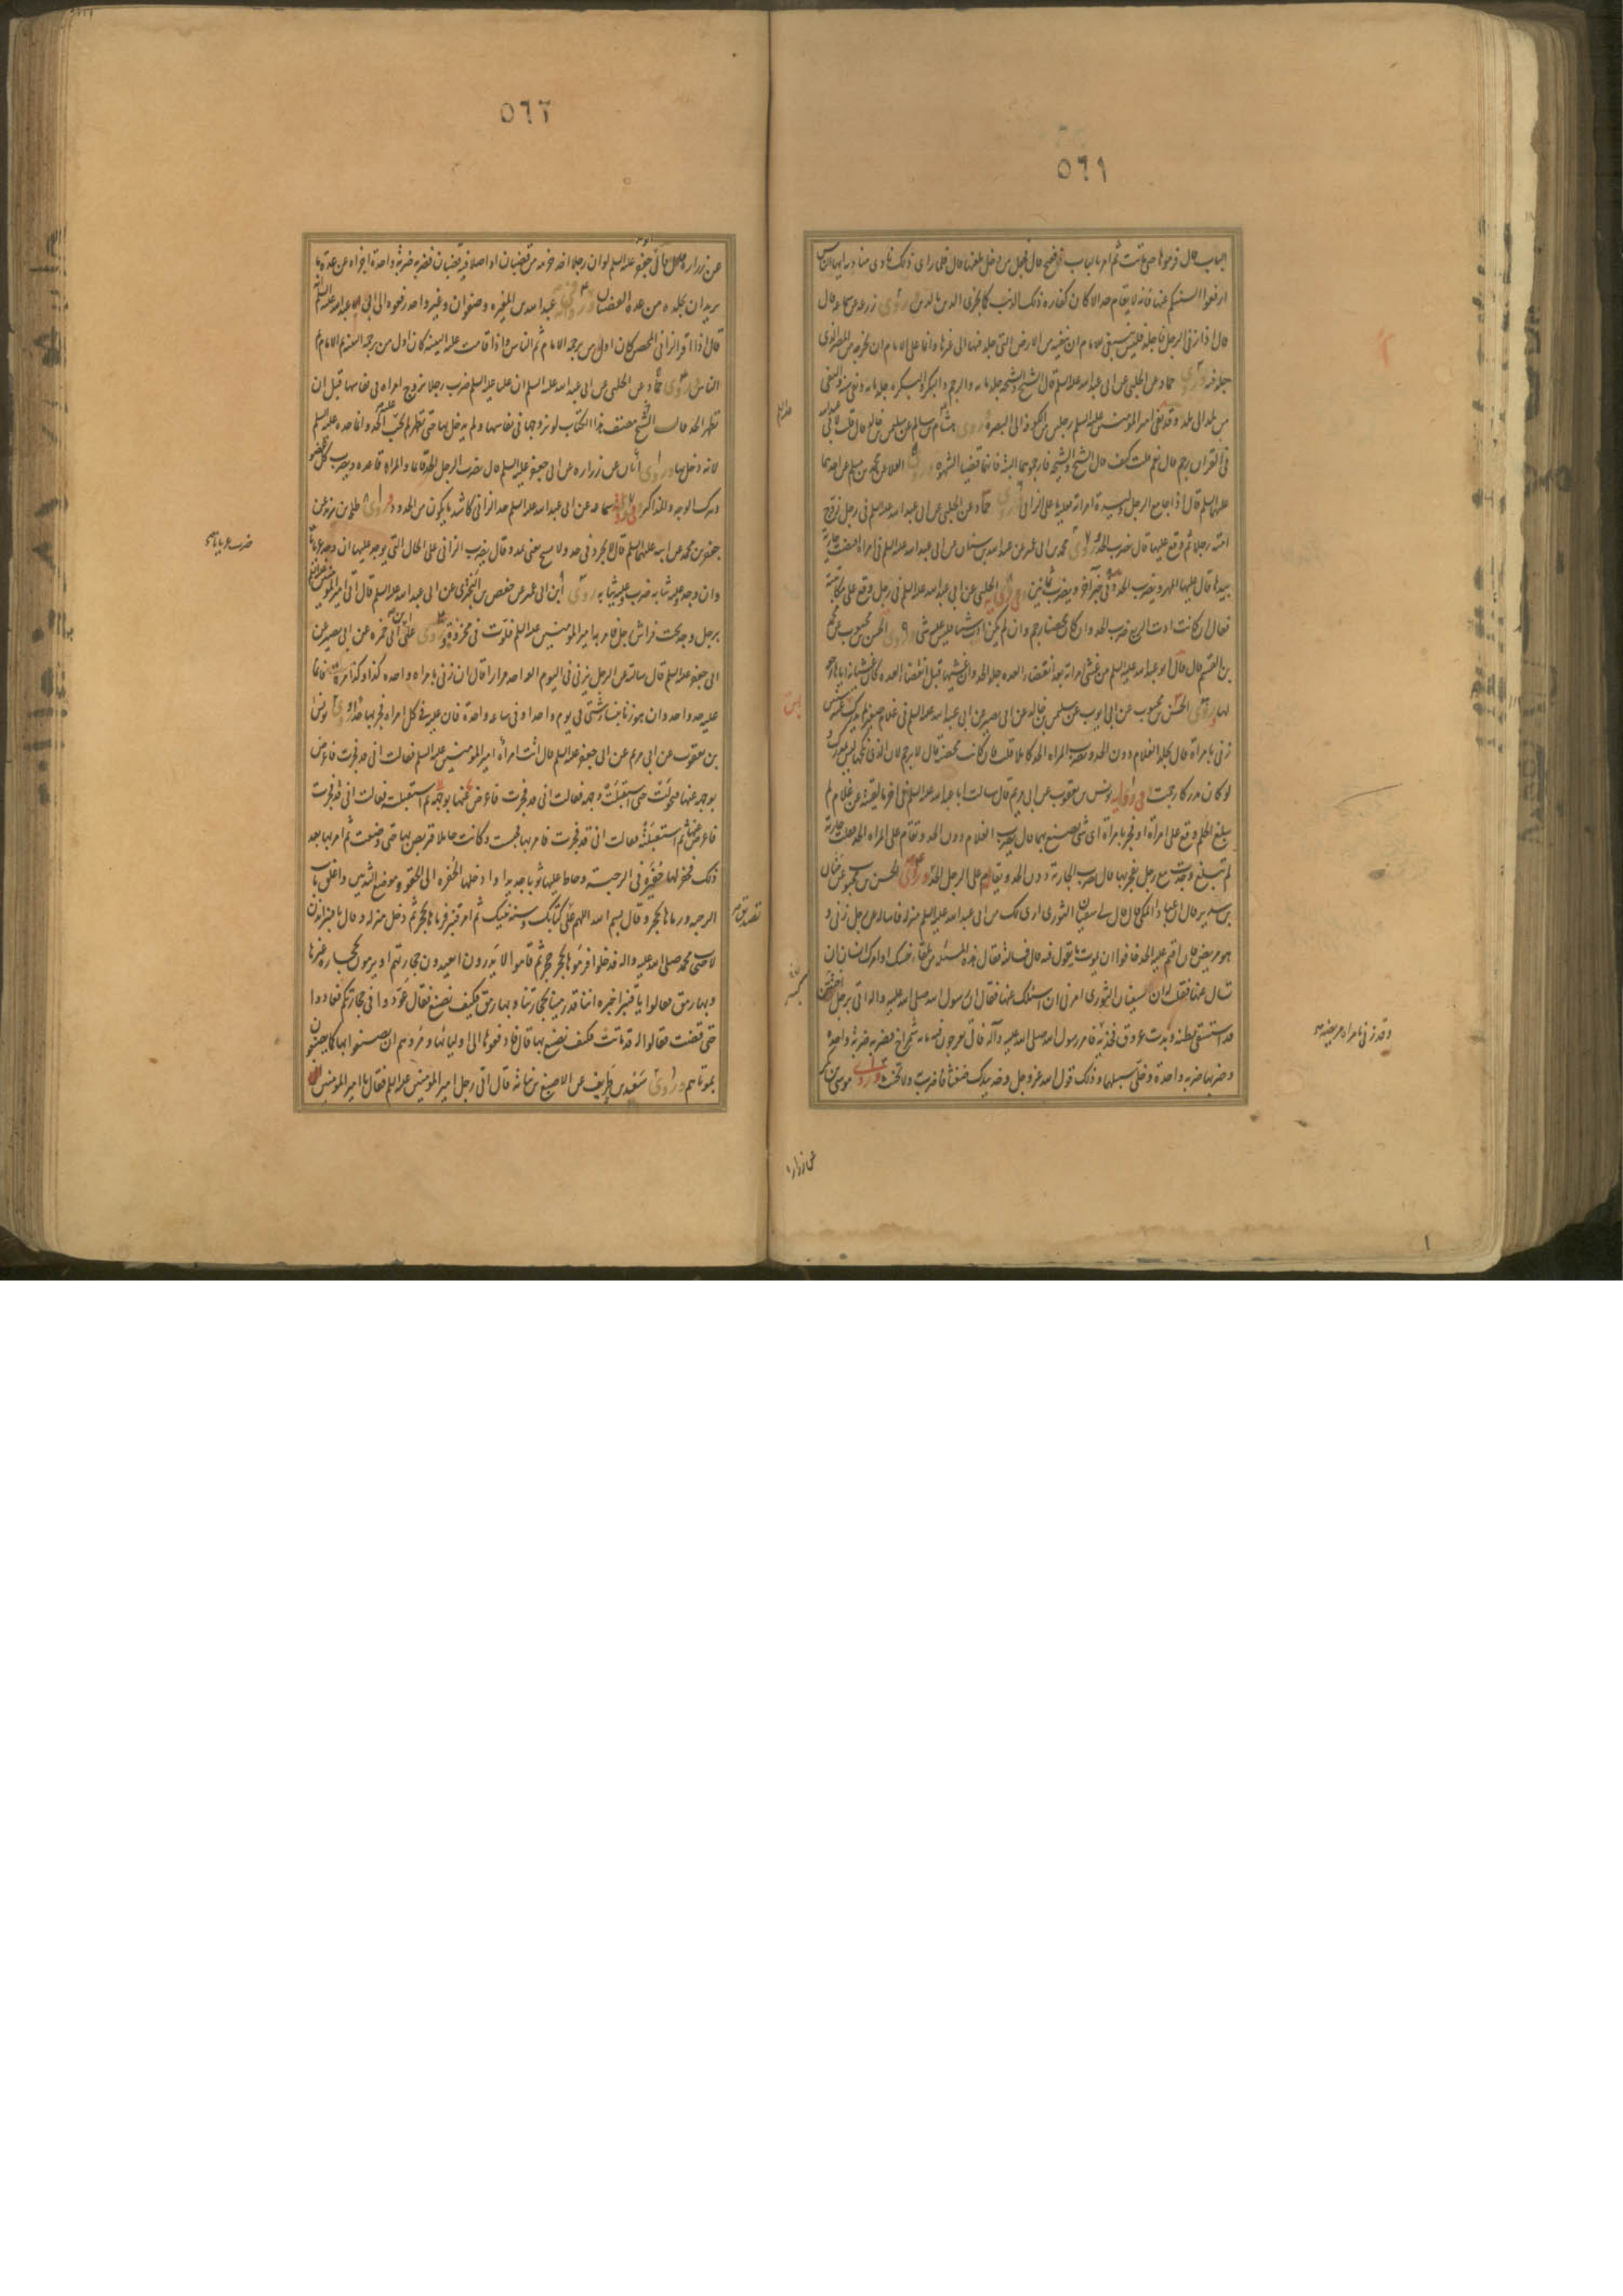 ٥٦١
الباب قال فرموها حتى ماتت ثم امر بالباب ففتح قال فجعل من دخل يلعنها قال فلما راى ذلك نادى مناديه ايها الناس
ارفعوا السنتكم عنها فانه لا يقام حد الا كان كفارة ذلك الذنب كما يجزى الدين بالدين وروى زرعه عن سماعه قال
قال اذا زنى الرجل فجلد فلينبغى للامام ان ينفيه من الارض التى جلد فيها الى غيرها وانما على الامام ان يخرجه من المصر الذى
جلد فيه وروى حماد عن الحلبى عن ابى عبد الله عليه السلم قال الشيخ والشيخه جلد مايه والرجم والبكر والبكره جلد مايه ونفى سنه والنفى
من بلد الى بلد وقد نفى امير المومنين عليه السلم رجلين من الكوفه الى البصرة وروى هشام بن سالم عن سليمن بن خالد قال قلت لابى عبد الله
فى القران رجم قال نعم قلت كيف قال الشيخ والشيخه فارجموهما البتة فانهما قضيا الشهوه وروى العلا عن محمد بن مسلم عن احدهما
عليهما السلم قال اذا جامع الرجل وليدة امراته فعليه ما على الزانى وروى حماد عن الحلبى عن ابى عبد الله عليه السلم فى رجل زوج
امته رجلا ثم وقع عليها قال يضرب الحد وروى محمد بن ابى عمير عن عبد الله بن سنان عن ابى عبد الله عليه السلم فى امراة افتضت جارية
بيدها قال عليها المهر وتضرب الحد وفى خبر آخر وتضرب ثمانين وفى رواية الحلبى عن ابى عبد الله عليه السلم فى رجل وقع على مكاتبة
فقال ان كانت ادت الربع ضرب الحد وان كان محصنا رجم وان لم يكن ادت شيئا فليس عليه شى وروى الحسن بن محبوب عن
بن القسم قال قال ابو عبد الله عليه السلم من غشى امراته بعد انقضاء العده جلد الحد وان غشيها قبل انقضاء العده كان غشيانه اياها رجعة
لها وروى الحسن بن محبوب عن ابى ايوب عن سليمن بن خالد عن ابى بصير عن ابى عبد الله عليه السلم فى غلام صغير لم يدرك
زنى بامراة قال يجلد الغلام دون الحد وتضرب المراه الحد كاملا قلت فان كانت محصنة قال لا ترجم لان الذى نكحها ليس بمدرك
لو كان مدركا رجمت وفى رواية يونس بن يعقوب عن ابى مريم قال سالت ابا عبد الله عليه السلم فى اخر ما لقيته عن غلام لم
يبلغ الحلم وقع على امراة او فجر بامراة اى شى يصنع بهما قال يضرب الغلام دون الحد ويقام على المراه الحد فقلت جارية
لم تبلغ وجدت مع رجل يفجر بها قال تضرب الجارية دون الحد ويقام على الرجل الحد وروى الحسن بن محبوب عن حنان
بن سدير قال ان عبادا المكى قال قال لى سفيان الثورى ارى لك من ابى عبد الله عليه السلم منزله فاساله عن رجل زنى و
هو مريض فان اقيم عليه الحد خافوا ان يموت ما يقول فيه قال فسالته فقال هذه المسئله من تلقاء نفسك او امرك انسان ان
تسال عنها فقلت ان سفيان الثورى امرنى ان اسئلك عنها فقال ان رسول الله صلى الله عليه واله اتى برجل
قد استسقى بطنه وبدت عروق فخذيه فامر رسول الله صلى الله عليه وآله فاتى بعرجون فيه مايه شمراخ فضربه ضربة واحدة
وضربها ضربه واحدة وخلى سبيلهما وذلك قول الله عز وجل وخذ بيدك ضغثا فاضرب به ولا تحنث وروى موسى بن بكر
وقد زنى بامراه مريضه
عن زراره
٥٦٢
عن زراره قال قال ابى جعفر عليه السلم لو ان رجلا اخذ حزمه من قضبان او اصلا فيه قضبان فضربه ضربة واحدة اجزاه عن عدة ما
يريد ان يجلده من عدة القضبان وروى عبد الله بن المغيره وصفوان وغير واحد رفعوه الى ابى عبد الله عليه السلم
قال اذا اقر الزانى المحصن كان اول من يرجمه الامام ثم الناس واذا قامت عليه البينه كان اول من يرجمه البينه ثم الامام ثم
الناس وروى حماد عن الحلبى عن ابى عبد الله عليه السلم ان عليا عليه السلم ضرب رجلا تزوج امراه فى نفاسها قبل ان
تطهر الحد قال الشيخ مصنف هذا الكتاب لو تزوجها فى نفاسها ولم يدخل بها حتى تطهر لم يجب عليه الحد وانما حده عليه السلم
لانه دخل بها وروى ابان عن زراره عن ابى جعفر عليه السلم قال يضرب الرجل الحد قائما والمراه قاعده ويضرب كل عضو
ويترك الوجه والمذاكر وفى رواية سماعه عن ابى عبد الله عليه السلم حد الزانى كاشد ما يكون من الحدود وروى طلحة بن زيد عن
جعفر بن محمد عن ابيه عليهما السلم قال لا يجرد فى حد ولا يشبح يعنى يمد وقال يضرب الزانى على الحال التى يوجد عليها ان وجد عريانا
وان وجد وعليه ثيابه ضرب وعليه ثيابه وروى ابن ابى عمير عن حفص بن البخترى عن ابى عبد الله عليه السلم قال اتى امير المومنين
برجل وجد تحت فراش رجل فامر به امير المومنين عليه السلم فلوث فى مخروة وروى على بن ابى حمزه عن ابى بصير عن
ابى جعفر عليه السلم قال سالته عن الرجل يزنى فى اليوم الواحد مرارا قال ان زنى بامراه واحده كذا وكذا مرة فانما
عليه حد واحد وان هو زنا بنسا شتى فى يوم واحد او فى ساعه واحدة فان عليه فى كل امراه فجر بها حدا وروى يونس
بن يعقوب عن ابى مريم عن ابى جعفر عليه السلم قال اتت امراة امير المومنين عليه السلم فقالت انى قد فجرت فاعرض
بوجهه عنها فتحولت حتى استقبلت وجهه فقالت انى قد فجرت فاعرض عنها بوجهه ثم استقبلته فقالت انى قد فجرت
فاعرض عنها ثم استقبلته فقالت انى قد فجرت فامر بها فحبست وكانت حاملا فتربص بها حتى وضعت ثم امر بها بعد
ذلك فحفر لها حفيرة فى الرحبة وخاط عليها ثوبا جديدا وادخلها الحفره الى الحقو وموضع الثديين واغلق باب
الرحبه ورماها بحجر وقال بسم الله اللهم على تصديق كتابك وسنة نبيك ثم امر قنبر فرماها بحجر ثم دخل منزله وقال يا قنبر ائذن
لاصحاب محمد صلى الله عليه واله فدخلوا فرموها بحجر حجر ثم قاموا لا يدرون ايعيدون حجارتهم او يرمون بحجاره غيرها
وبها رمق فقالوا يا قنبر اخبره اننا قد رمينا بحجارتنا وبها رمق فكيف نصنع فقال عودوا فى حجارتكم فعادوا
حتى قضت فقالوا له قد ماتت فكيف نصنع بها قال فادفعوها الى اوليائها ومروهم ان يصنعوا بها كما يصنعون
بموتاهم وروى سعد بن طريف عن الاصبغ بن نباته قال اتى رجل امير المومنين عليه السلم فقال يا امير المومنين
ضرب عريانا
تصديق